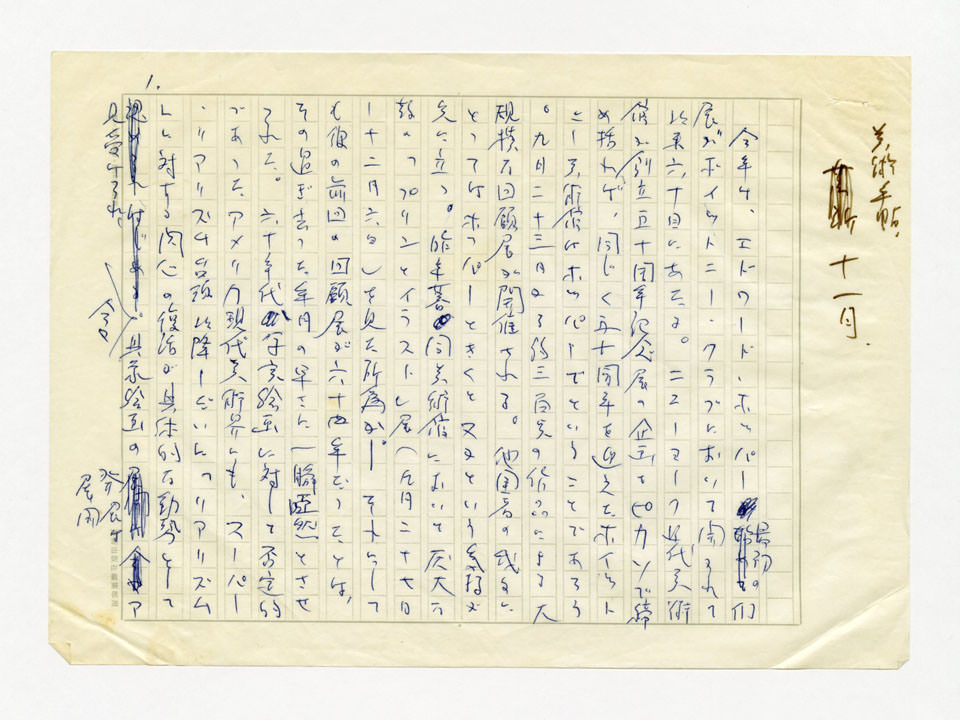 美術手帖
十一月.
1.
今年は、エドワード・ホッパー最初の個
展がホイットニー・クラブにおいて開かれて
以来六十年にあたる。ニューヨーク近代美術
館が創立五十周年記念展の企画をピカソで締
め括れば、同じく五十周年を迎えたホイット
ニー美術館はホッパーでということであろう
。九月二十三日より約三百点の作品による大
規模な回顧展が開催される。他国者の我々に
とってはホッパーときくと又かという気持が
先に立つ。昨年暮同美術館において厖大な
数の「プリントとイラスト」展(九月二十七日
ー十二月六日)を見た所為か。それにして
も彼の前回の回顧展が六十四年だったとは、
その過ぎ去った年月の早さに一瞬啞然とさせ
られた。六十年代、写実絵画に対して否定的
であったアメリカ現代美術界にも、スーパー
・リアリズム台頭以降しだいに「リアリズム
」に対する関心の復活が具体的な動勢として
見受けられ、具象絵画の
発展
展開
ア